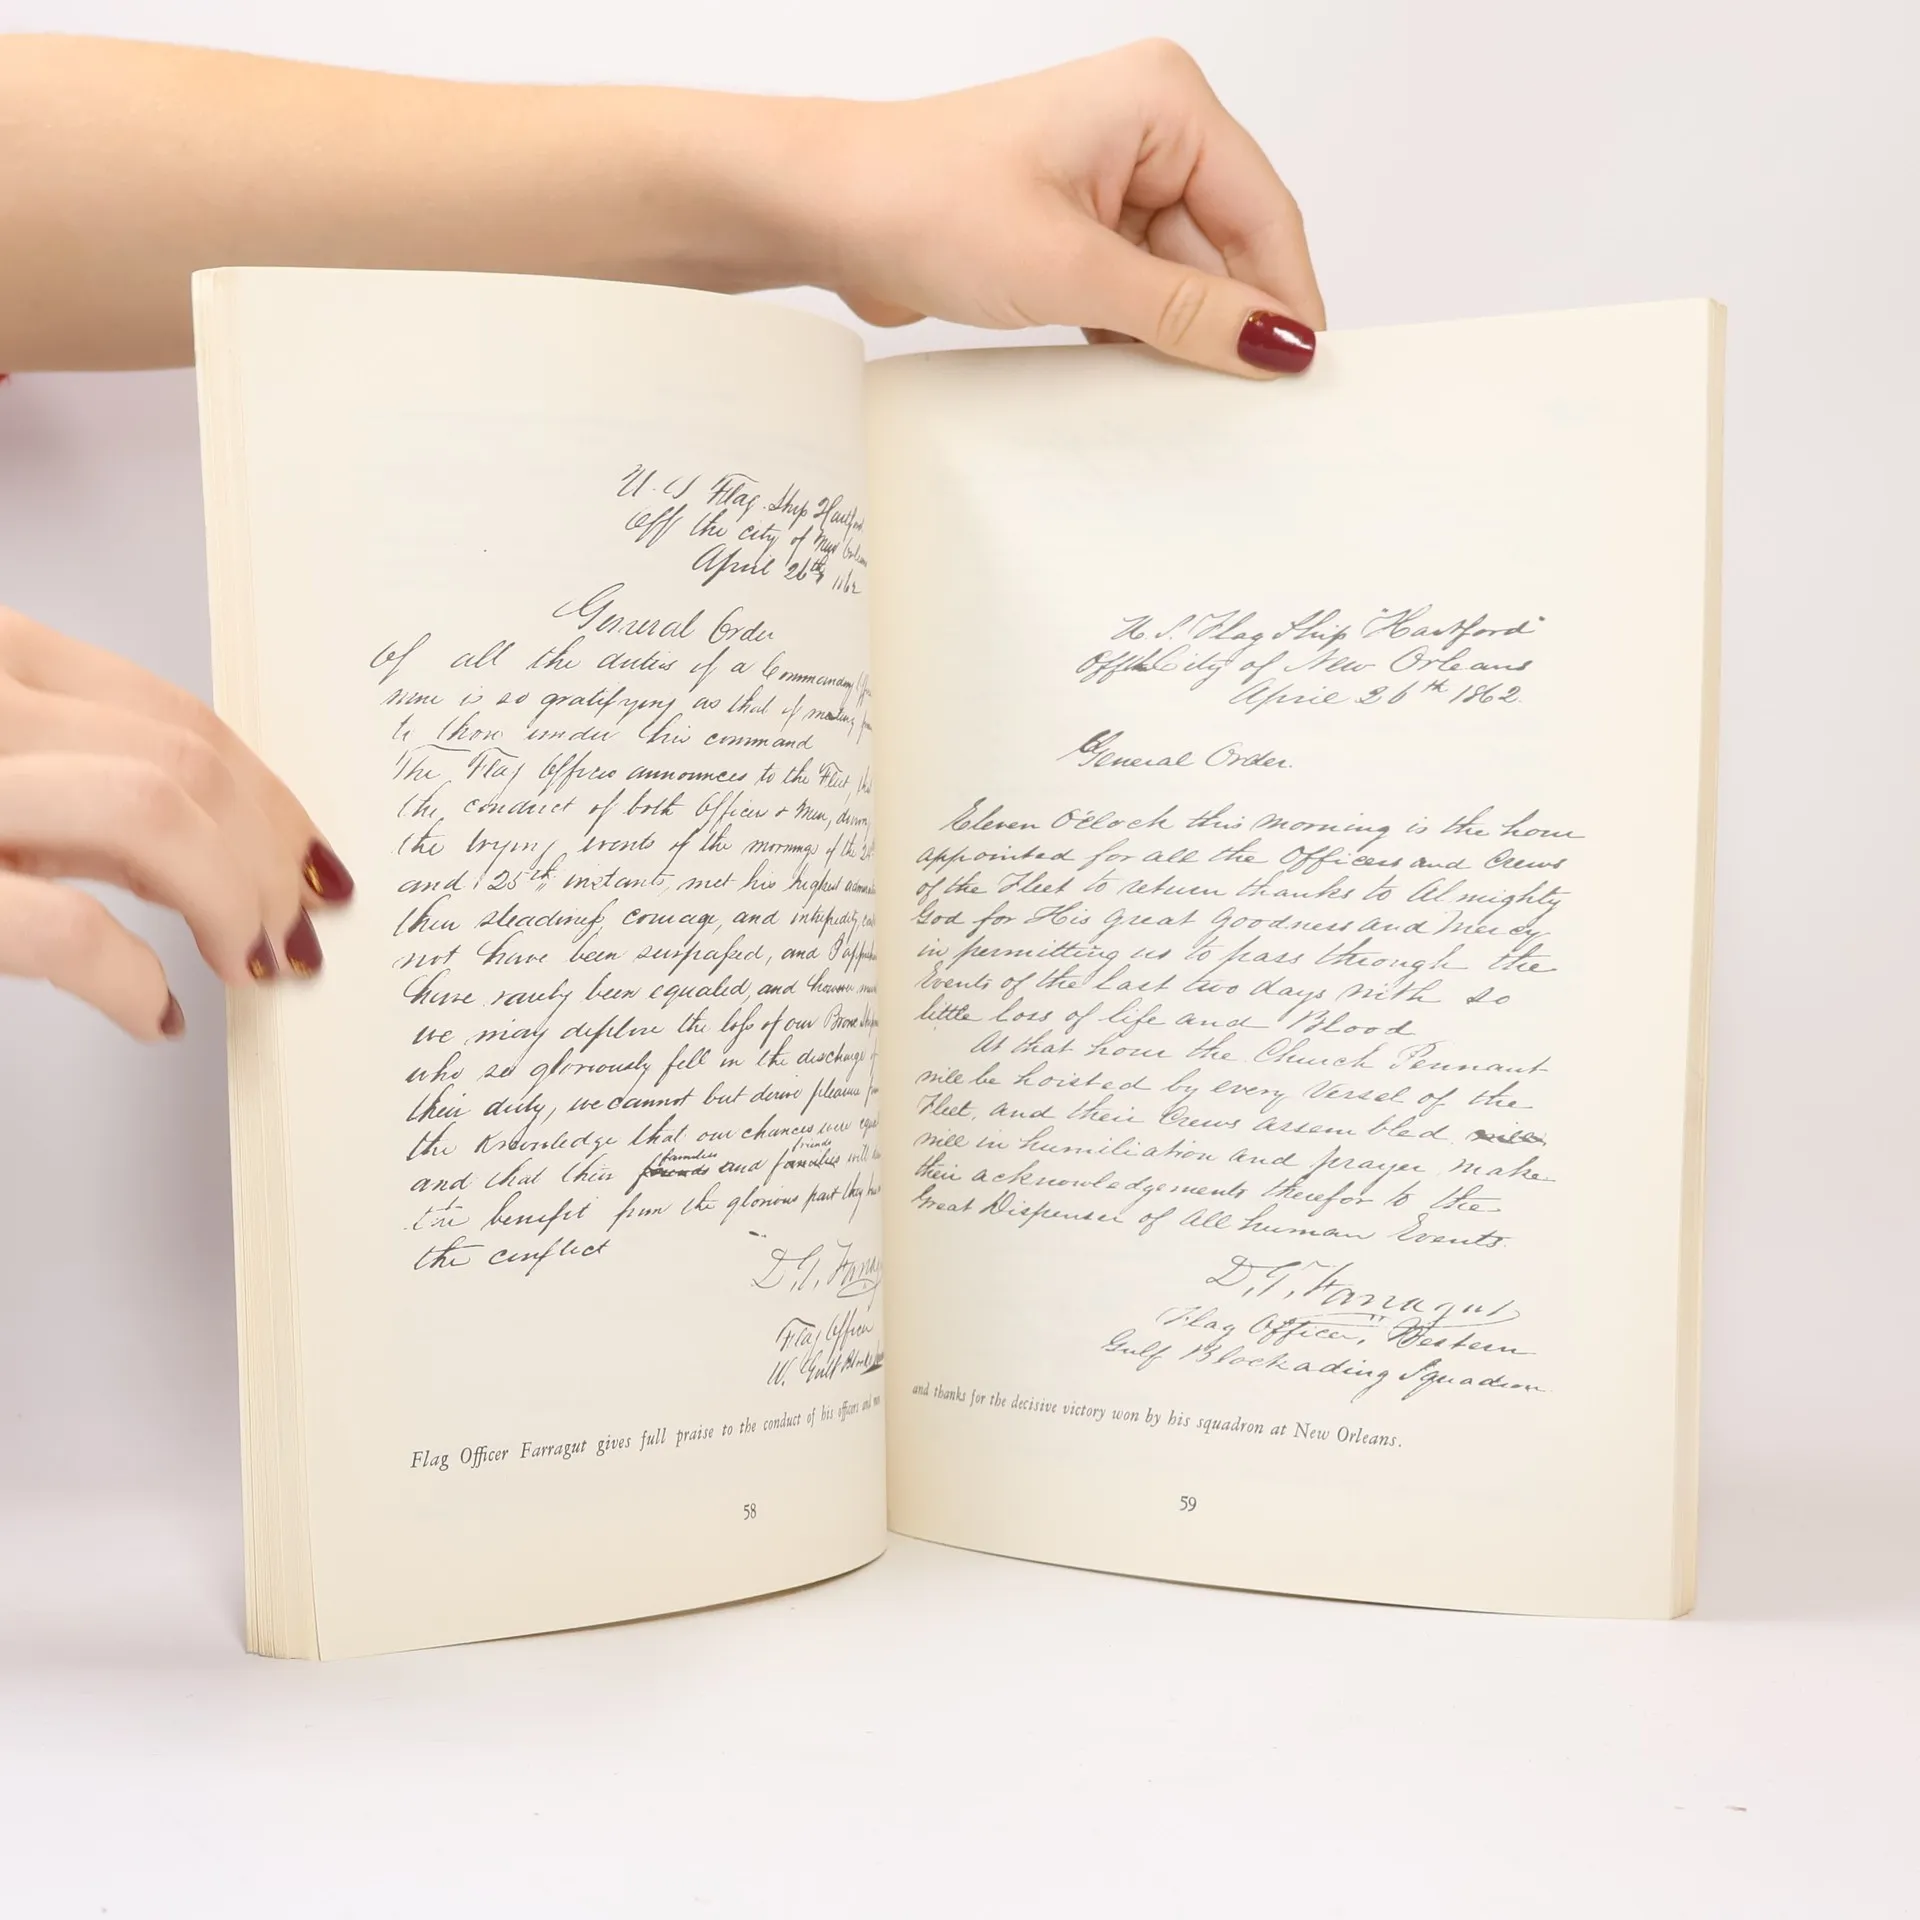 U. S Flag Ship Hartford
Off the city of New Orleans
April 26th 1862
General Order
Of all the duties of a Commanding
none is so gratifying as that of meeting
to those under his command
The Flag Officer announces to the Fleet, that
the conduct of both Officers & Men, during
the trying events of the mornings of the 24
and 25th instants, met his highest
their steadiness, courage, and intrepidity,
not have been surpassed, and I
have rarely been equaled, and however
we may deplore the loss of our Brave
who so gloriously fell in the discharge of
their duty, we cannot but derive pleasure from
the Knowledge that our chances were equal
families friends
and that their friends and families will
the benefit from the glorious part they
the conflict
D. G. Farrag
Flag Officer
W. Gulf
Flag Officer Farragut gives full praise to the conduct of his officers and men
58
U. S. Flag Ship "Hartford"
Off the City of New Orleans
April 26th 1862.
General Order.
Eleven O'Clock this morning is the hour
appointed for all the Officers and Crews
of the Fleet to return thanks to Almighty
God for His great Goodness and Mercy
in permitting us to pass through the
Events of the last two days with so
little loss of life and Blood
At that hour the Church Pennant
will be hoisted by every Vessel of the
Fleet, and their Crews assembled will
will in humiliation and prayer make
their acknowledgements therefor to the
Great Dispenser of all human Events.
D. G. Farragut
Flag Officer, Western
Gulf Blockading Squadron
and thanks for the decisive victory won by his squadron at New Orleans.
59